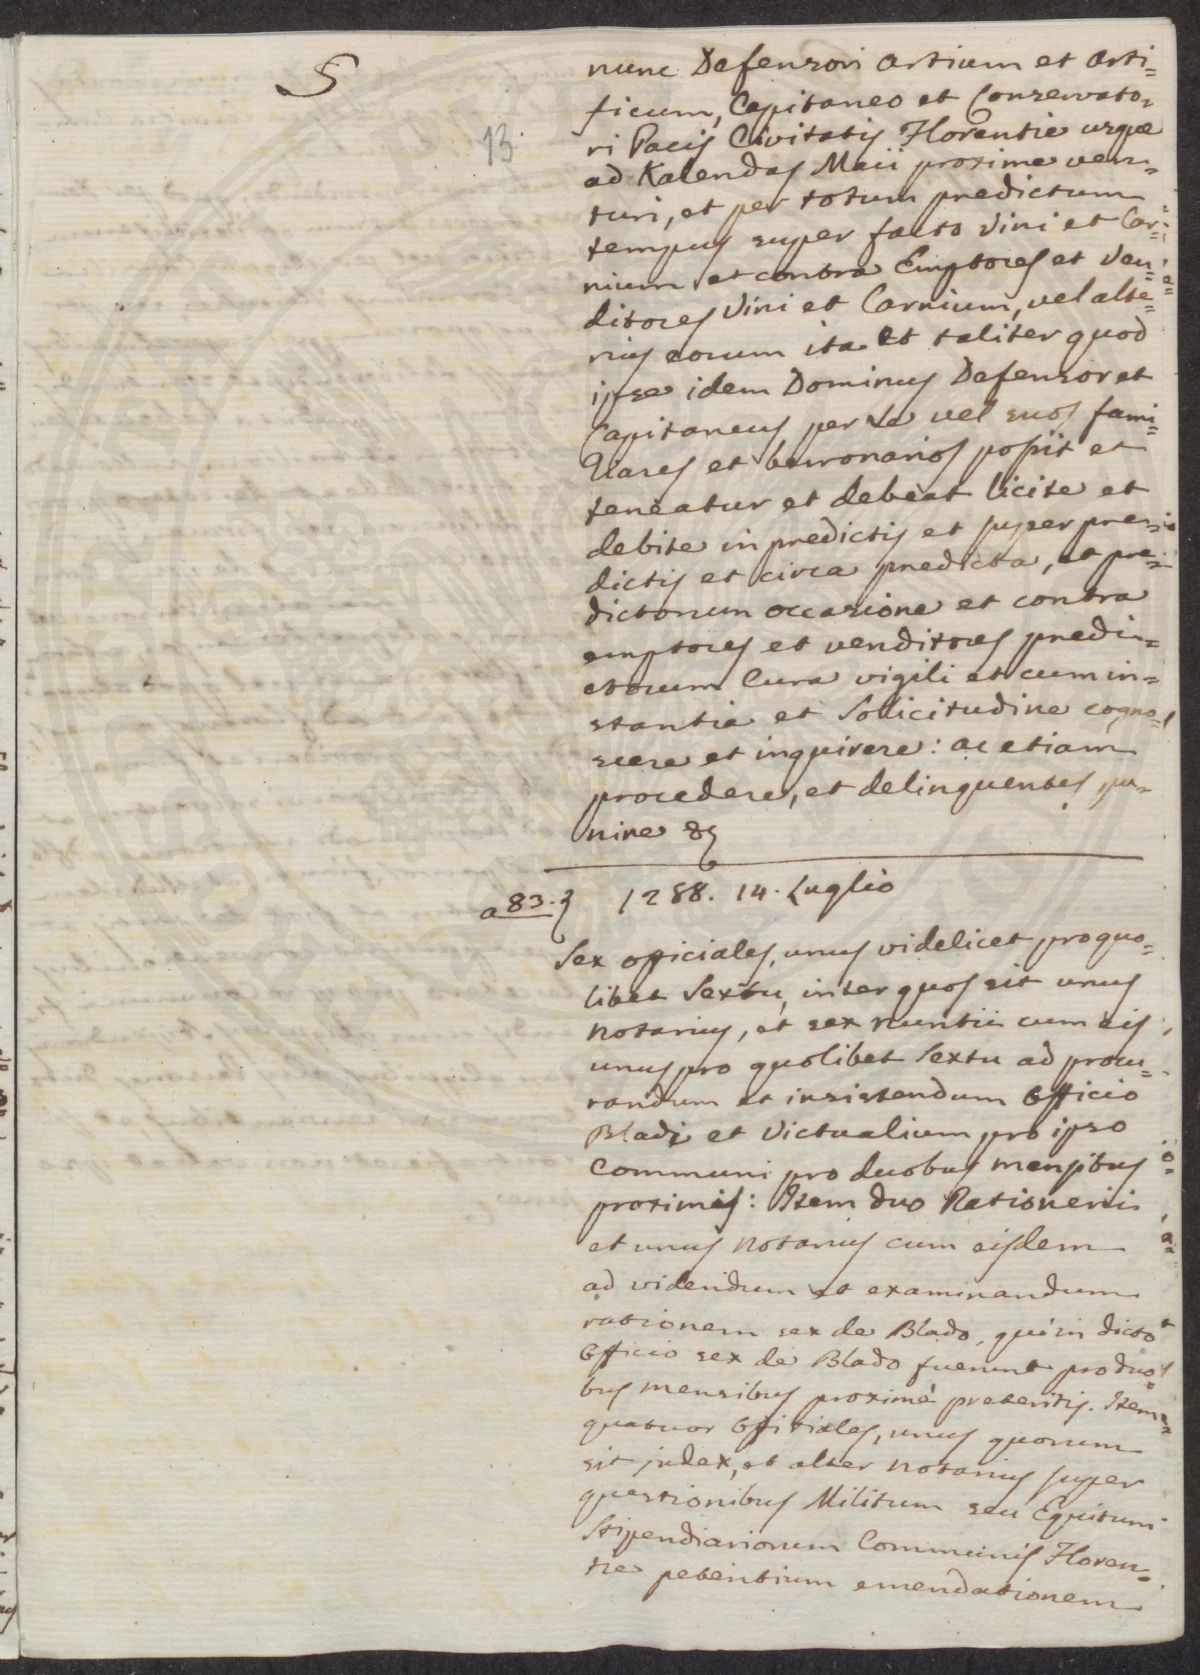 5
13.
nunc Defensori Artium et Arti=
ficum, Capitaneo et Conservato=
ri Pacis Civitatis Florentie usque
ad Kalendas Maii proxime ven=
turi, et per totum predictum
tempus super facto Vini et Car=
nium et contra Emptores et Ven=
ditores Vini et Carnium, vel alte=
rius eorum ita et taliter quod
ipse idem Dominus Defensor et
Capitaneus per se vel suos fami=
liares et berronarios possit et
teneatur et debeat licite et
debite in predictis et super pre=
dictis et circa predicta, et pre=
dictorum occasione et contra
emptores et venditores predi=
ctorum Cura vigili et cum in=
stantia et Solicitudine cogno=
scere et inquirere: ac etiam
procedere, et delinquentes pu=
nire &c
a 83. 1288. 14. Luglio
Sex officiales, unus videlicet pro quo=
libet Sextu, inter quos sit unus
Notarius, et sex nuntii cum eis
unus pro quolibet Sextu ad procu=
randum et insistendum Officio
Bladi et Victualium pro ipso
Communi pro duobus mensibus
proximis: Item duo Rationerii
et unus Notarius cum eisdem
ad videndum et examinandum
rationem sex de Blado, qui in dicto
Officio sex de Blado fuerunt pro duo=
bus mensibus proximè preteritis. Item
quatuor Officiales, unus quorum
sit judex, et alter Notarius super
questionibus Militum seu Equitum
Stipendiariorum Communis Floren=
tie petentium emendationem